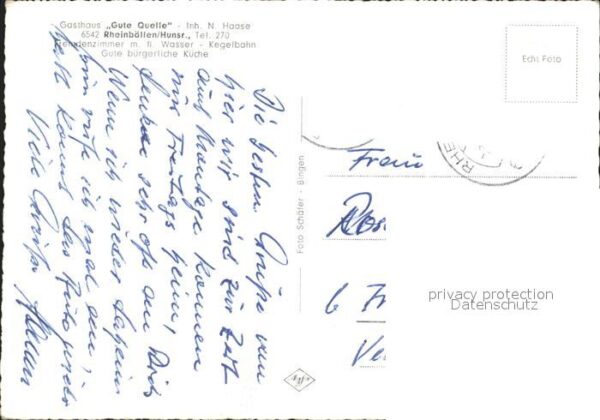 Gasthaus „Gute Quelle" - Inh. N. Haase
6542 Rheinböllen/Hunsr., Tel. 270
Fremdenzimmer m. fl. Wasser - Kegelbahn
Gute bürgerliche Küche
Die besten Grüße von
hier wir sind zur Zeit
auf Montage kommen
nur Freitags heim,
denke sehr oft an Dich
Wenn ich wieder daheim
bin rufe ich mal an,
Viele Grüße
Foto Schäfer - Bingen
Echt Foto
RHE
Frau
privacy protection
Datenschutz